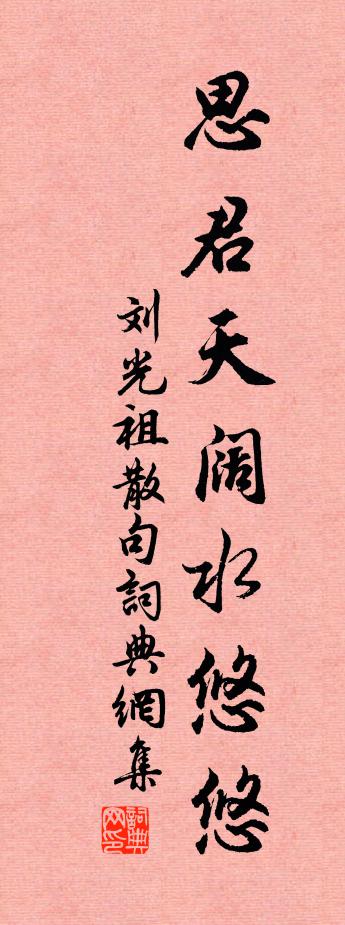 思君天阔水悠悠
刘光祖散句詞典網集
詞典网印